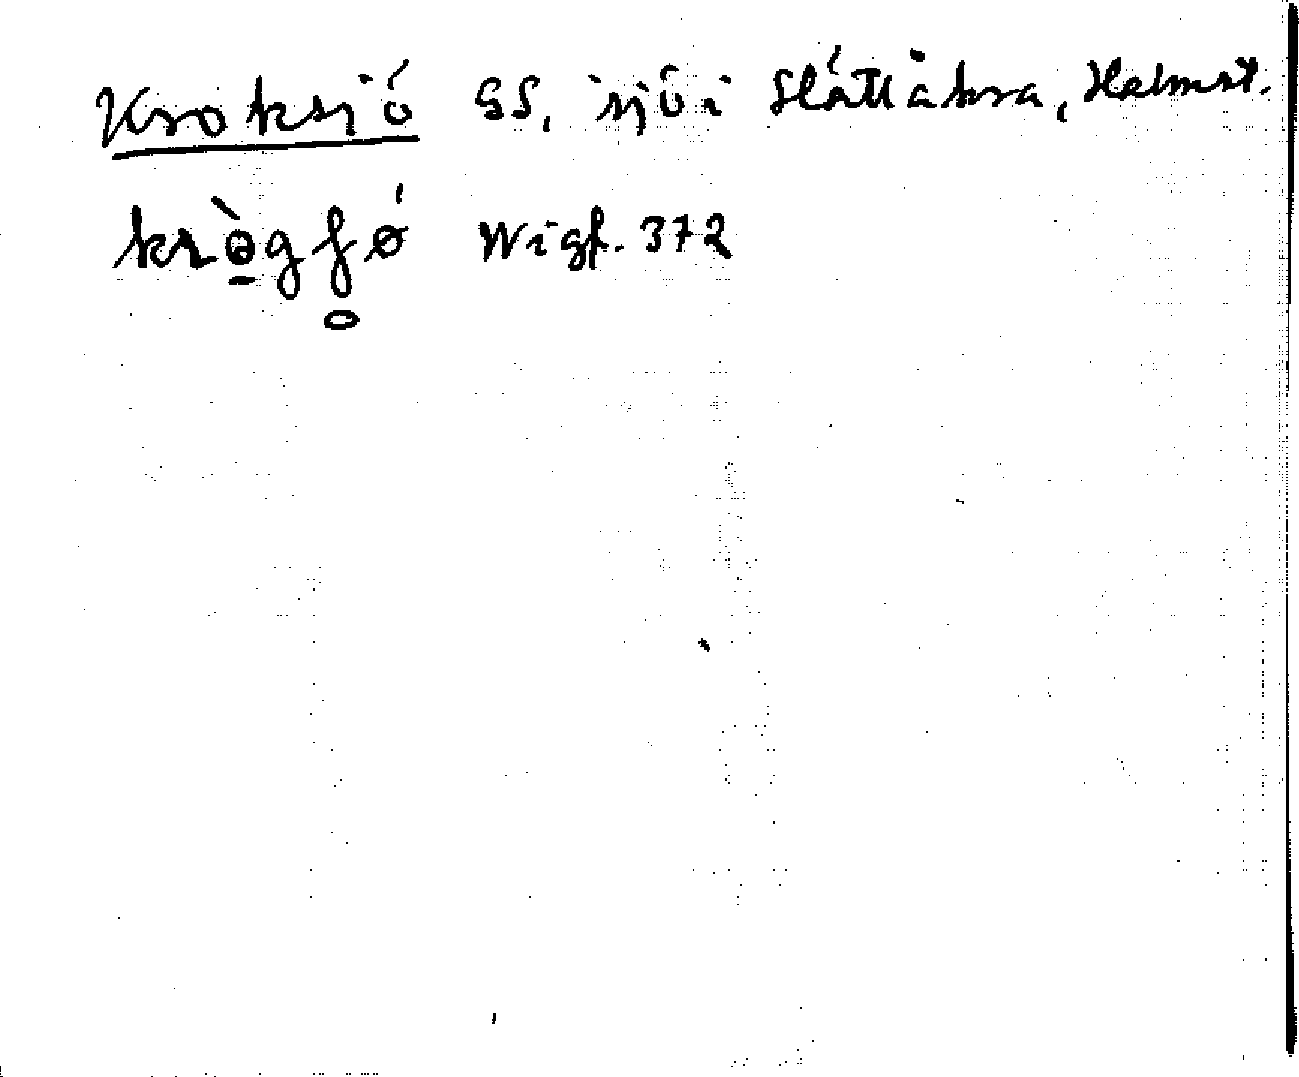 Kroksjö SS, sjö i Slättåkra, Halmst.
krògfö Wigf. 372